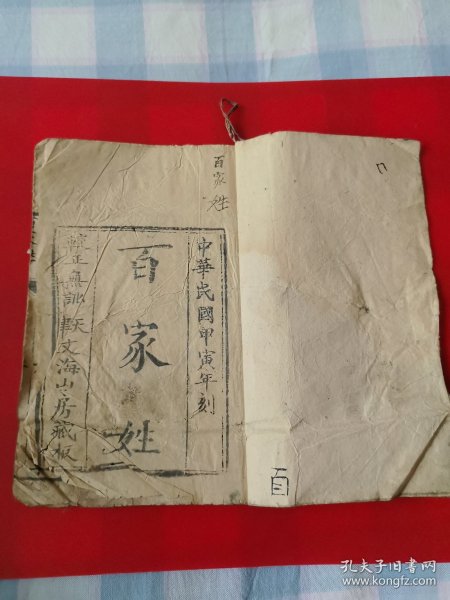 中華民國甲寅年刻
百家姓
較正無訛
文海山房藏板
百家姓
百
孔夫子旧书网
www.kongfz.com